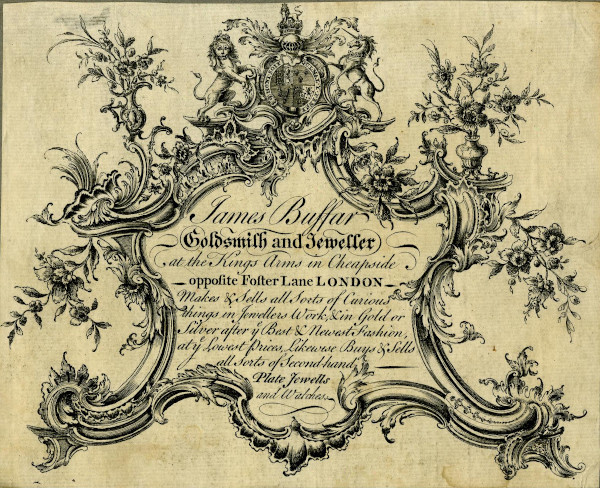 James Buffar
Goldsmith and Jeweller
at the Kings Arms in Cheapside
opposite Foster Lane LONDON
Makes & Sells all Sorts of Curious
things in Jewellers Work, & in Gold or
Silver after yͤ Best & Newest Fashion,
at yͤ Lowest Prices, Likewise Buys & Sells
all Sorts of Second-hand
Plate Jewells
and Watches